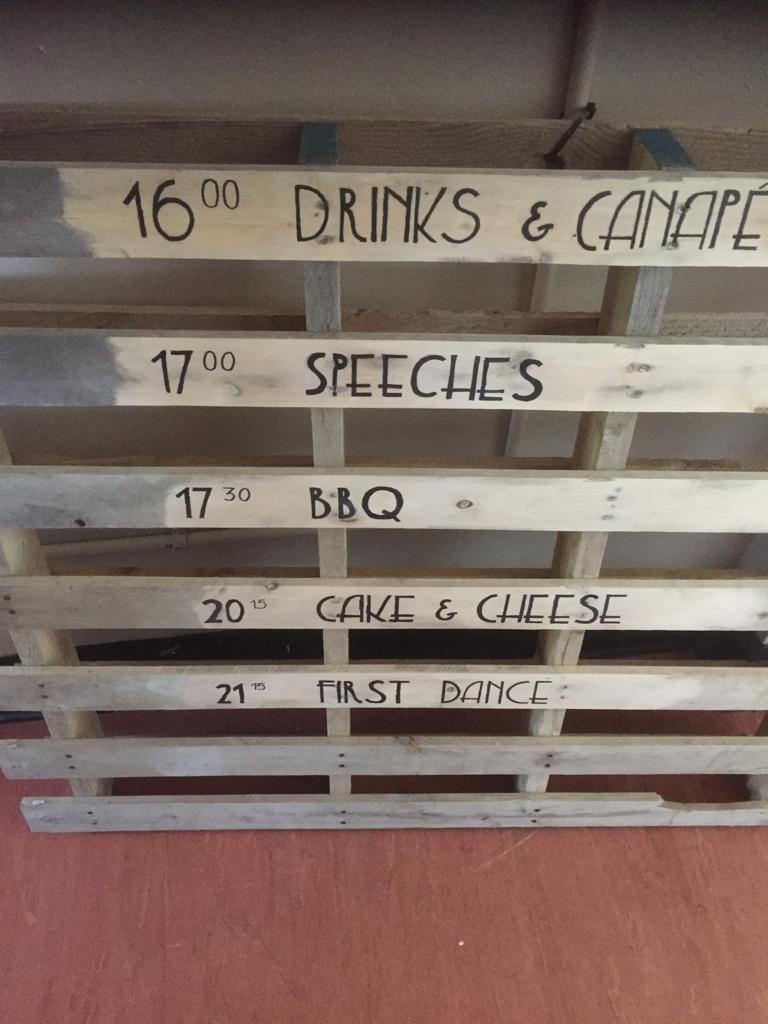 16 00 DRINKS & CANAPÉ
17 00 SPEECHES
17 30 BBQ
20 15 CAKE & CHEESE
21 15 FIRST DANCE